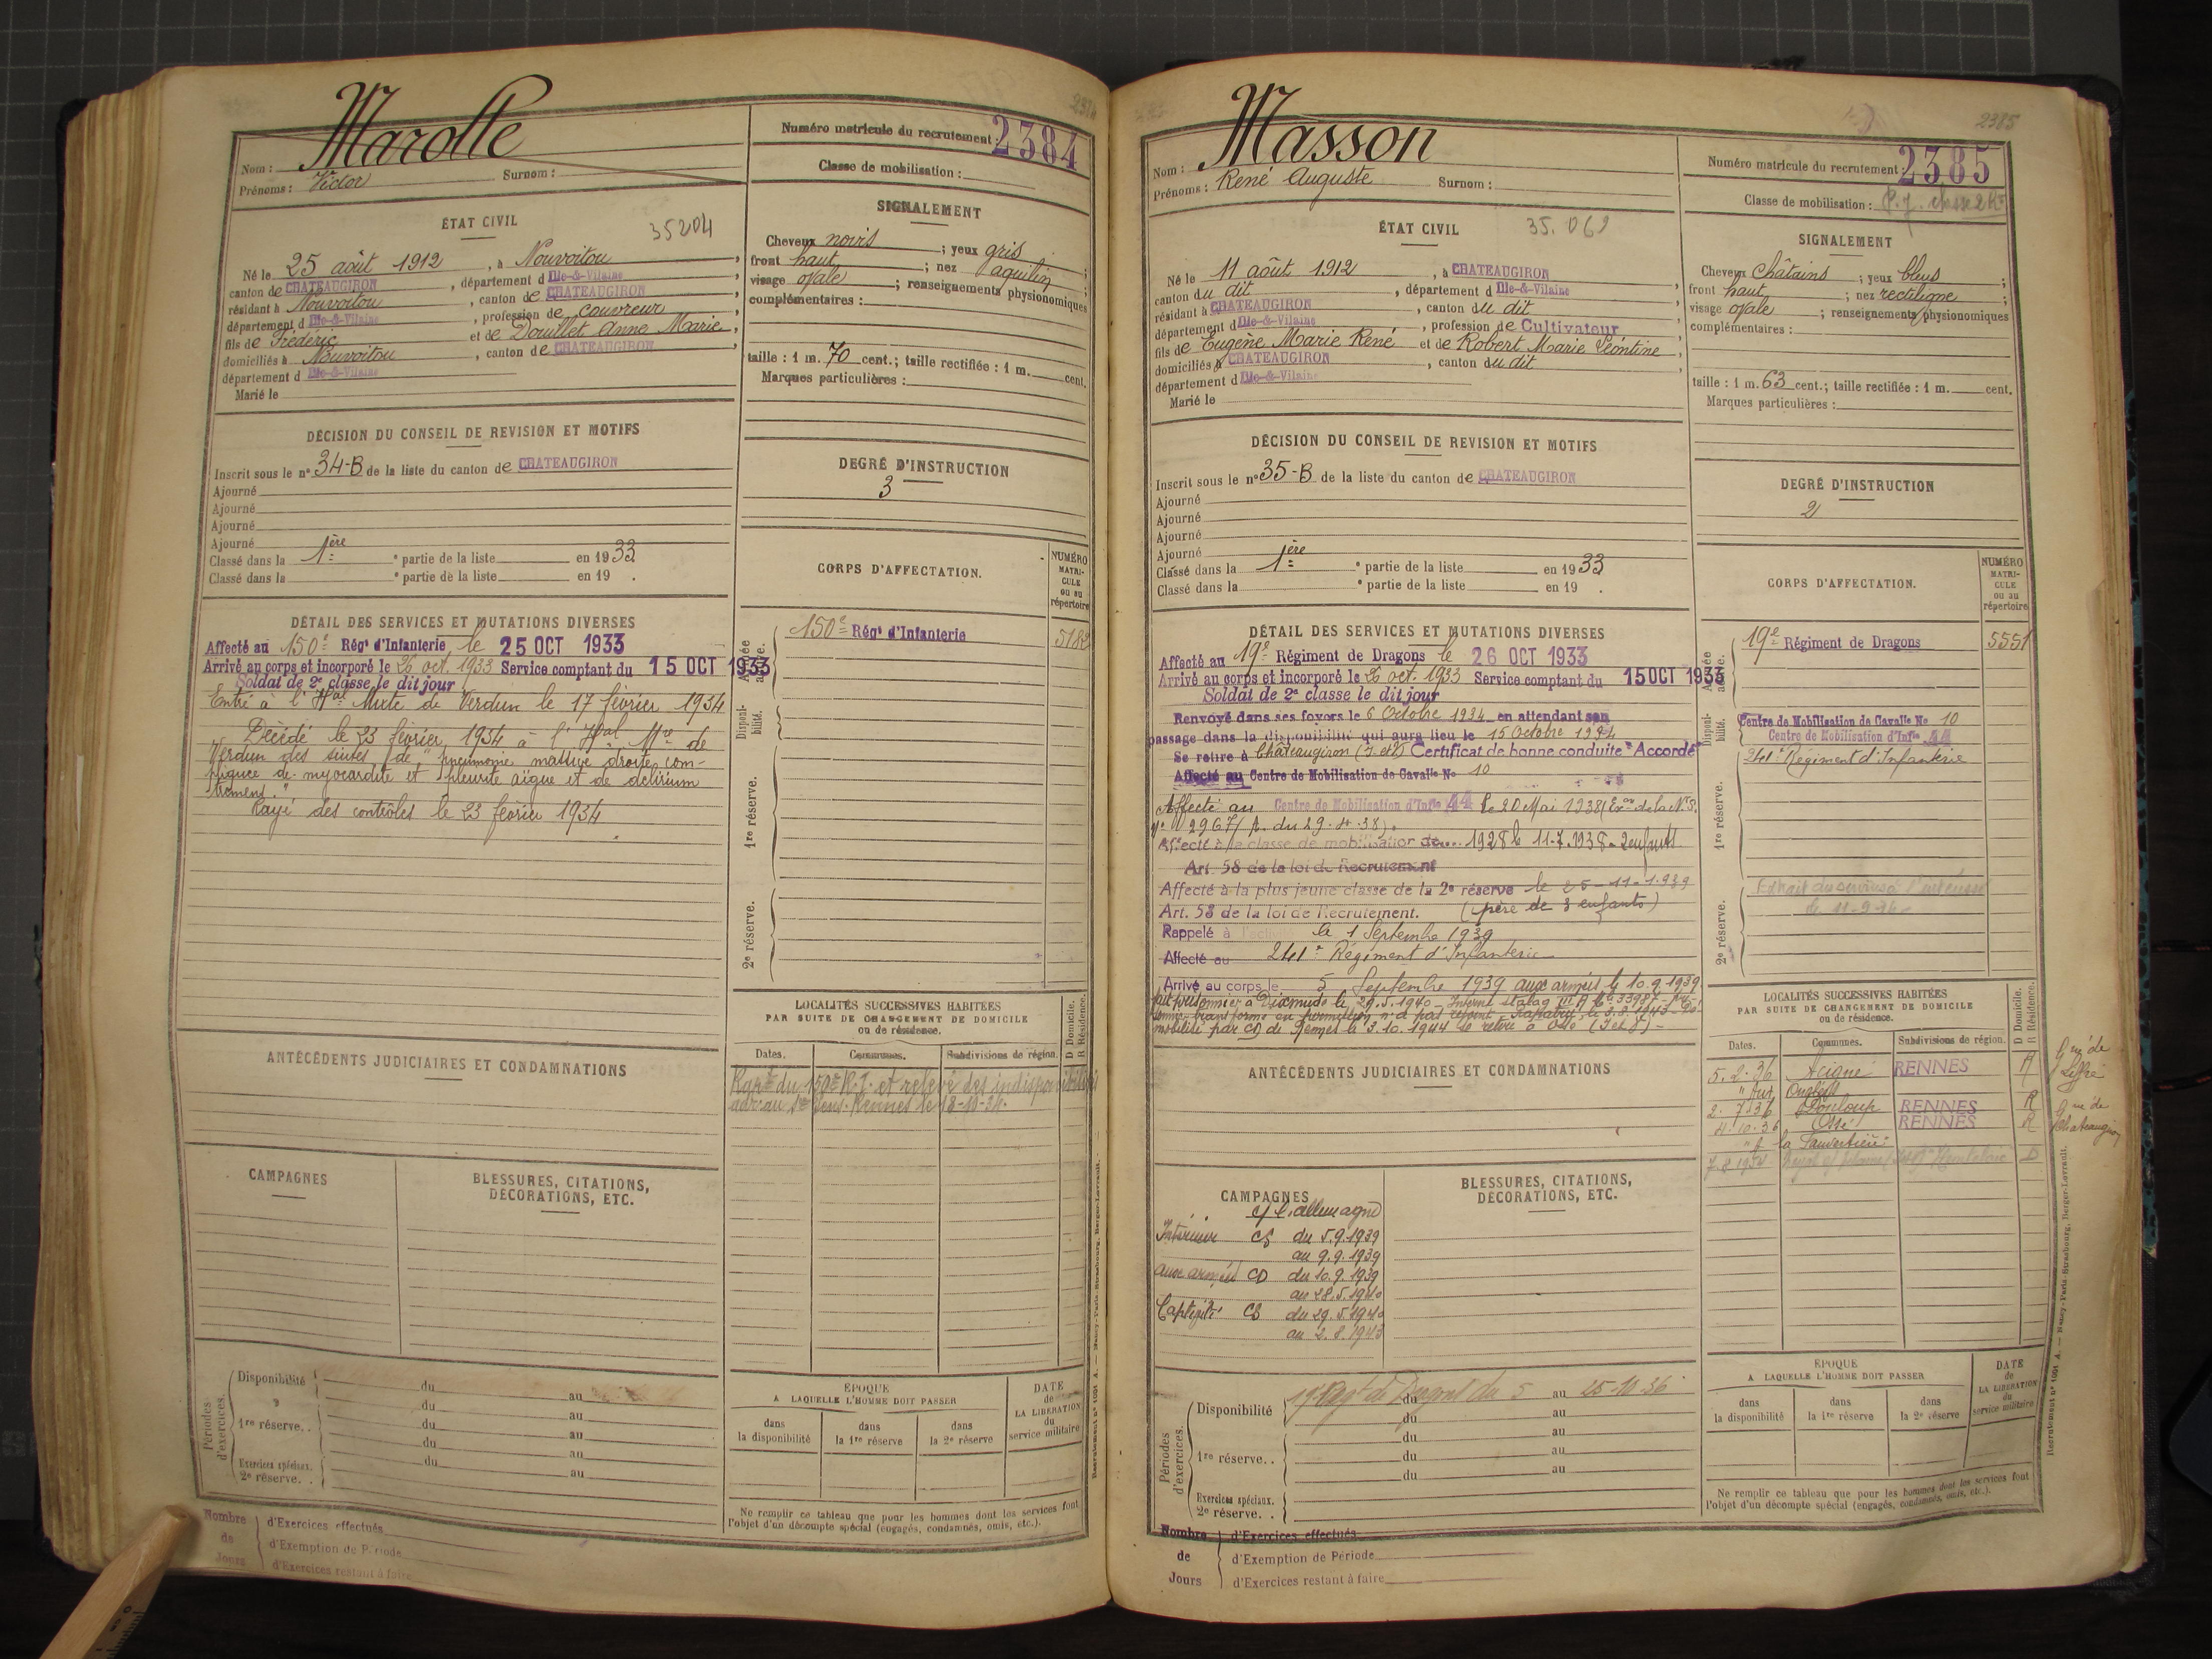 2384
Marolle
Nom :
Prénoms : Victor Surnom :
Numéro matricule du recrutement : 2384
Classe de mobilisation :
ÉTAT CIVIL
35204
Né le 25 août 1912, à Nouvoitou,
canton de CHATEAUGIRON, département d Ille-&-Vilaine
résidant à Nouvoitou, canton de CHATEAUGIRON,
département d Ille-&-Vilaine, profession de couvreur,
fils de Frédéric et de Douillet Anne Marie,
domiciliés à Nouvoitou, canton de CHATEAUGIRON,
département d Ille-&-Vilaine
Marié le
SIGNALEMENT
Cheveux noirs ; yeux gris ;
front haut ; nez aquilin ;
visage ovale ; renseignements physionomiques
complémentaires :
taille : 1 m. 70 cent.; taille rectifiée : 1 m. cent.
Marques particulières :
DÉCISION DU CONSEIL DE REVISION ET MOTIFS
Inscrit sous le n° 34-B de la liste du canton de CHATEAUGIRON
Ajourné
Ajourné
Ajourné
Ajourné
Classé dans la 1ère partie de la liste en 1933
Classé dans la partie de la liste en 19 .
DEGRÉ D'INSTRUCTION
3
DÉTAIL DES SERVICES ET MUTATIONS DIVERSES
Affecté au 150e Régt d'Infanterie, le 25 OCT 1933
Arrivé au corps et incorporé le 26 oct. 1933 Service comptant du 15 OCT 1933
Soldat de 2e classe le dit jour
Entré à l'Hal Mixte de Verdun le 17 février 1934
Décédé le 23 février 1934 à l'Hal Mre de
Verdun des suites de "pneumonie massive droite com-
pliquée de myocardite et pleurite aïgue et de delirium
tremens."
Rayé des contrôles le 23 février 1934
CORPS D'AFFECTATION.
NUMÉRO MATRICULE ou au répertoire
Armée active.
150e Régt d'Infanterie 5182
Disponibilité.
1re réserve.
2e réserve.
LOCALITÉS SUCCESSIVES HABITÉES
PAR SUITE DE CHANGEMENT DE DOMICILE
ou de résidence.
D Domicile.
R Résidence.
Dates. Communes. Subdivisions de région.
ANTÉCÉDENTS JUDICIAIRES ET CONDAMNATIONS
CAMPAGNES
BLESSURES, CITATIONS,
DÉCORATIONS, ETC.
Périodes d'exercices.
Disponibilité du au
1re réserve. . du au
Exercices spéciaux.
2e réserve. .
ÉPOQUE
A LAQUELLE L'HOMME DOIT PASSER
dans la disponibilité
dans la 1re réserve
dans la 2e réserve
DATE de LA LIBÉRATION du service militaire
Ne remplir ce tableau que pour les hommes dont les services font
l'objet d'un décompte spécial (engagés, condamnés, omis, etc.).
Nombre de Jours
d'Exercices effectués
d'Exemption de Période
d'Exercices restant à faire
2385
Masson
Nom :
Prénoms : René Auguste Surnom :
Numéro matricule du recrutement : 2385
Classe de mobilisation :
ÉTAT CIVIL
35.069
Né le 11 août 1912, à CHATEAUGIRON
canton du dit, département d Ille-&-Vilaine
résidant à CHATEAUGIRON, canton du dit,
département d Ille-&-Vilaine, profession de Cultivateur
fils de Eugène Marie René et de Robert Marie Léontine,
domiciliés à CHATEAUGIRON, canton du dit,
département d Ille-&-Vilaine
Marié le
SIGNALEMENT
Cheveux châtains ; yeux bleus ;
front haut ; nez rectiligne ;
visage ovale ; renseignements physionomiques
complémentaires :
taille : 1 m. 63 cent.; taille rectifiée : 1 m. cent.
Marques particulières :
DÉCISION DU CONSEIL DE REVISION ET MOTIFS
Inscrit sous le n° 35-B de la liste du canton de CHATEAUGIRON
Ajourné
Ajourné
Ajourné
Ajourné
Classé dans la 1ère partie de la liste en 1933
Classé dans la partie de la liste en 19 .
DEGRÉ D'INSTRUCTION
2
DÉTAIL DES SERVICES ET MUTATIONS DIVERSES
Affecté au 19e Régiment de Dragons le 26 OCT 1933
Arrivé au corps et incorporé le 26 oct. 1933 Service comptant du 15 OCT 1933
Soldat de 2e classe le dit jour
Renvoyé dans ses foyers le 6 Octobre 1934 en attendant son
passage dans la disponibilité qui aura lieu le 15 Octobre 1934
Se retire à Châteaugiron (I et V) Certificat de bonne conduite "Accordé"
Affecté au Centre de Mobilisation de Cavalle No 10
Affecté au Centre de Mobilisation d'Infie 44 le 20 Mai 1938 (Exon de la N. S.
No 2967/A. du 29.4.38).
Affecté à la classe de mobilisation de 1928 le 11.7.1938 - 2 enfants
Art. 58 de la loi de Recrutement
Affecté à la plus jeune classe de la 2e réserve le 25-11-1939
Art. 58 de la loi de Recrutement. (père de 3 enfants)
Rappelé à l'activité le 1 Septembre 1939
Affecté au 241e Régiment d'Infanterie
Arrivé au corps le 5 Septembre 1939 aux armées le 10.9.1939
fait prisonnier à Dixmude le 29.5.1940 - Interné stalag
mobilisé par CD de Rennes le 3.10.1944 se retire à Ossé (I et V) -
CORPS D'AFFECTATION.
NUMÉRO MATRICULE ou au répertoire
Armée active.
19e Régiment de Dragons 5551
Disponibilité.
Centre de Mobilisation de Cavalle No 10
Centre de Mobilisation d'Infie 44
241e Régiment d'Infanterie
1re réserve.
2e réserve.
LOCALITÉS SUCCESSIVES HABITÉES
PAR SUITE DE CHANGEMENT DE DOMICILE
ou de résidence.
D Domicile.
R Résidence.
Dates. Communes. Subdivisions de région.
5.2.36 Acigné RENNES R
2.7.36 RENNES R
4.10.36 Ossé RENNES R
ANTÉCÉDENTS JUDICIAIRES ET CONDAMNATIONS
CAMPAGNES
c/ l'allemagne
Intérieur CS du 5.9.1939
au 9.9.1939
aux armées CD du 10.9.1939
au 28.5.1940
Captivité CS du 29.5.1940
au 2.8.1943
BLESSURES, CITATIONS,
DÉCORATIONS, ETC.
Périodes d'exercices.
Disponibilité 19e Rgt de Dragons du 5 au 25-10-36
1re réserve. . du au
Exercices spéciaux.
2e réserve. .
ÉPOQUE
A LAQUELLE L'HOMME DOIT PASSER
dans la disponibilité
dans la 1re réserve
dans la 2e réserve
DATE de LA LIBÉRATION du service militaire
Ne remplir ce tableau que pour les hommes dont les services font
l'objet d'un décompte spécial (engagés, condamnés, omis, etc.).
Nombre de Jours
d'Exercices effectués
d'Exemption de Période
d'Exercices restant à faire